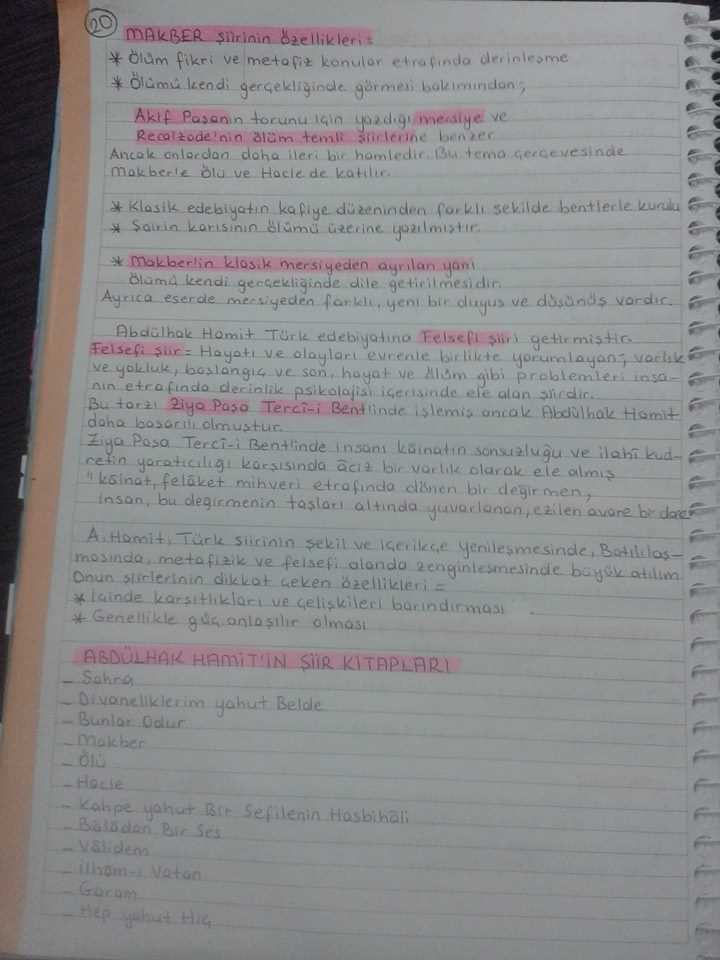 20
MAKBER şiirinin özellikleri =
* Ölüm fikri ve metafiz konular etrafında derinleşme
* Ölümü kendi gerçekliğinde görmesi bakımından;
Akif Paşanın torunu için yazdığı mersiye ve
Recaizade'nin ölüm temli şiirlerine benzer
Ancak onlardan daha ileri bir hamledir. Bu tema çerçevesinde
Makber'e Ölü ve Hacle de katılır.
* Klasik edebiyatın kafiye düzeninden farklı şekilde bentlerle kurulu
* Şairin karısının ölümü üzerine yazılmıştır.
* Makber'in klasik mersiyeden ayrılan yanı
Ölümü kendi gerçekliğinde dile getirilmesidir.
Ayrıca eserde mersiyeden farklı, yeni bir duyuş ve düşünüş vardır.
Abdülhak Hamit Türk edebiyatına Felsefi şiiri getirmiştir.
Felsefi şiir = Hayatı ve olayları evrenle birlikte yorumlayan; varlık
ve yokluk, başlangıç ve son, hayat ve ölüm gibi problemleri insa-
nın etrafında derinlik psikolojisi içerisinde ele alan şiirdir.
Bu tarzı Ziya Paşa Terci-i Bent'inde işlemiş ancak Abdülhak Hamit
daha başarılı olmuştur.
Ziya Paşa Terci-i Bent'inde insanı kâinatın sonsuzluğu ve ilahî kud-
retin yaratıcılığı karşısında âciz bir varlık olarak ele almış
"kâinat, felâket mihveri etrafında dönen bir değirmen,
insan, bu değirmenin taşları altında yuvarlanan, ezilen avare bir dane
A. Hamit, Türk şiirinin şekil ve içerikçe yenileşmesinde, Batılılaş-
masında, metafizik ve felsefi alanda zenginleşmesinde büyük atılım
Onun şiirlerinin dikkat çeken özellikleri =
* İçinde karşıtlıkları ve çelişkileri barındırması
* Genellikle güç anlaşılır olması
ABDÜLHAK HAMİT'İN ŞİİR KİTAPLARI
- Sahra
- Divaneliklerim yahut Belde
- Bunlar Odur
- Makber
- Ölü
- Hacle
- Kahpe yahut Bir Sefilenin Hasbihâli
- Bâlâdan Bir Ses
- Vâlidem
- İlham-ı Vatan
- Garam
- Hep yahut Hiç